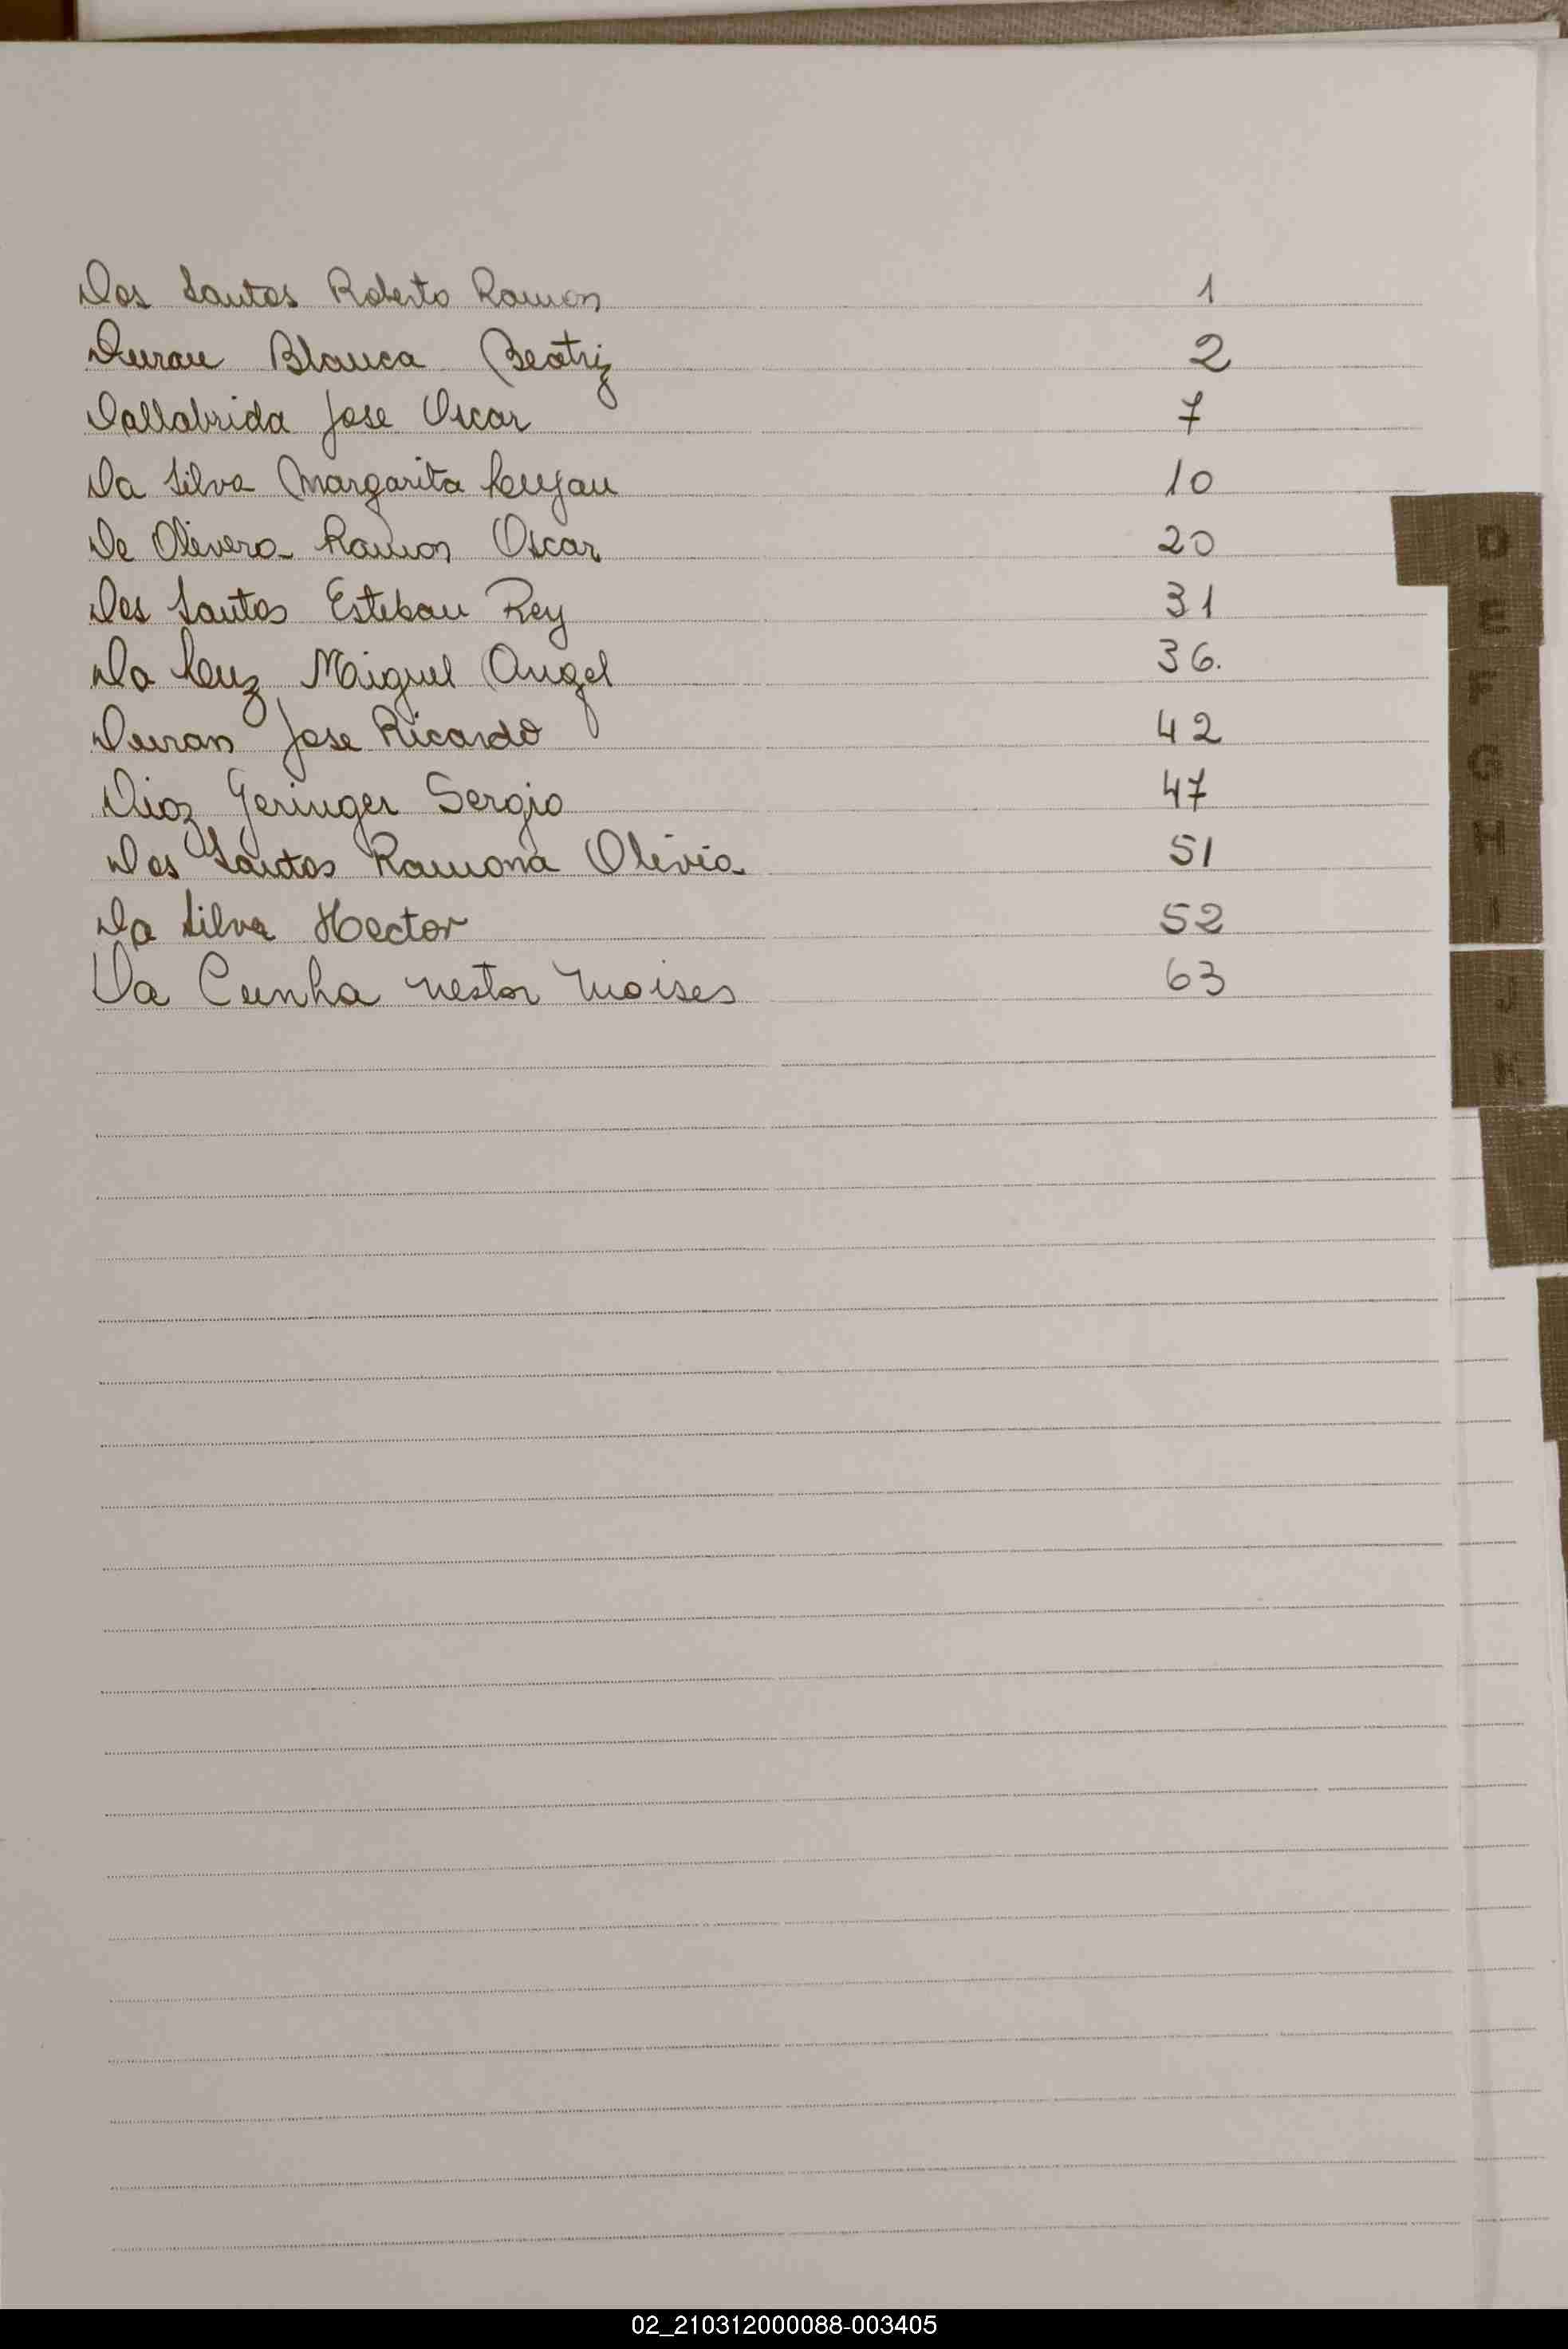 Dos Santos Roberto Ramon 1
Duran Blanca Beatriz 2
Dallabrida Jose Oscar 7
Da Silva Margarita Lujan 10
De Olivera Ramon Oscar 20
Dos Santos Esteban Rey 31
Da Luz Miguel Angel 36.
Duran Jose Ricardo 42
Dioz Geringer Sergio 47
Dos Santos Ramona Olivia 51
Da Silva Hector 52
Da Cunha Nestor Moises 63
D
E
F
G
H
I
J
K
02_210312000088-003405